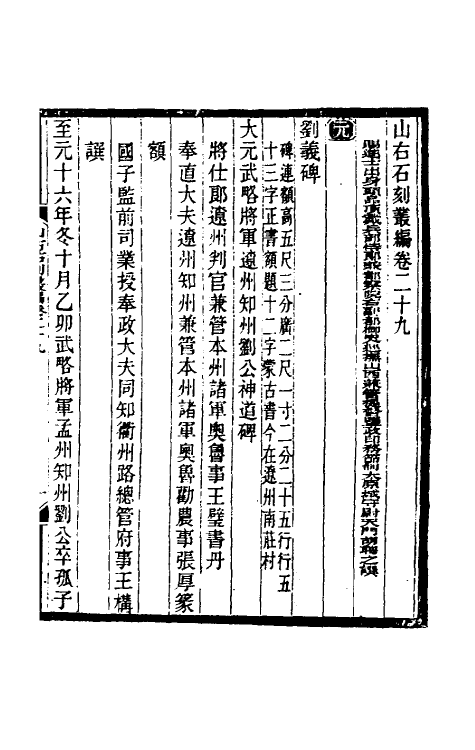 山右石刻叢編卷二十九
賜進士出身
撫山西兼管提督鹽政印務節制太原城守尉天門胡聘之撰
元
劉義碑
碑連額高五尺三分廣二尺一寸二分二十五行行五
十三字正書額題十二字蒙古書今在遼州南莊村
大元武略將軍遼州知州劉公神道碑
將仕郎遼州判官兼管本州諸軍奧魯事王璧書丹
奉直大夫遼州知州兼管本州諸軍奧魯勸農事張厚篆
額
國子監前司業授奉政大夫同知衢州路總管府事王構
譔
至元十六年冬十月乙卯武略將軍孟州知州劉公卒孤子